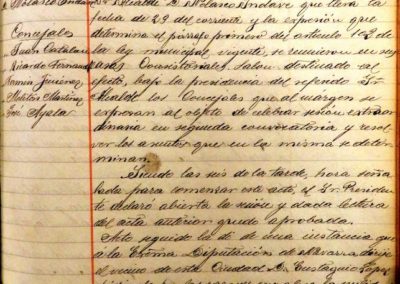 Nolasco Andave
Concejales
Juan Catalan
Ricardo Fernandez
Ramón Jiménez
Meliton Martinez
José Ayala
Alcalde D. Nolasco Andave que lleva la
fecha de 29 del corriente y la expresion que
determina el párrafo primero del articulo 102 de
la ley municipal vigente, se reunieron en sus
Casas Consistoriales, salon destinado al
efecto, bajo la presidencia del referido Sr.
Alcalde los Concejales que al márgen se
expresan al objeto de celebrar sesion extraor
dinaria en segunda convocatoria y resol
ver los asuntos que en la misma se deter
minan.
Siendo las seis de la tarde, hora seña
lada para comenzar este acto, el Sr. Presiden
te declaró abierta la sesion y dada lectura
del acta anterior quedó aprobada.
Acto seguido la dá de una instancia que
a la Excma Diputacion de Navarra dirije
el vecino de esta Ciudad D. Eustaquio Lopez